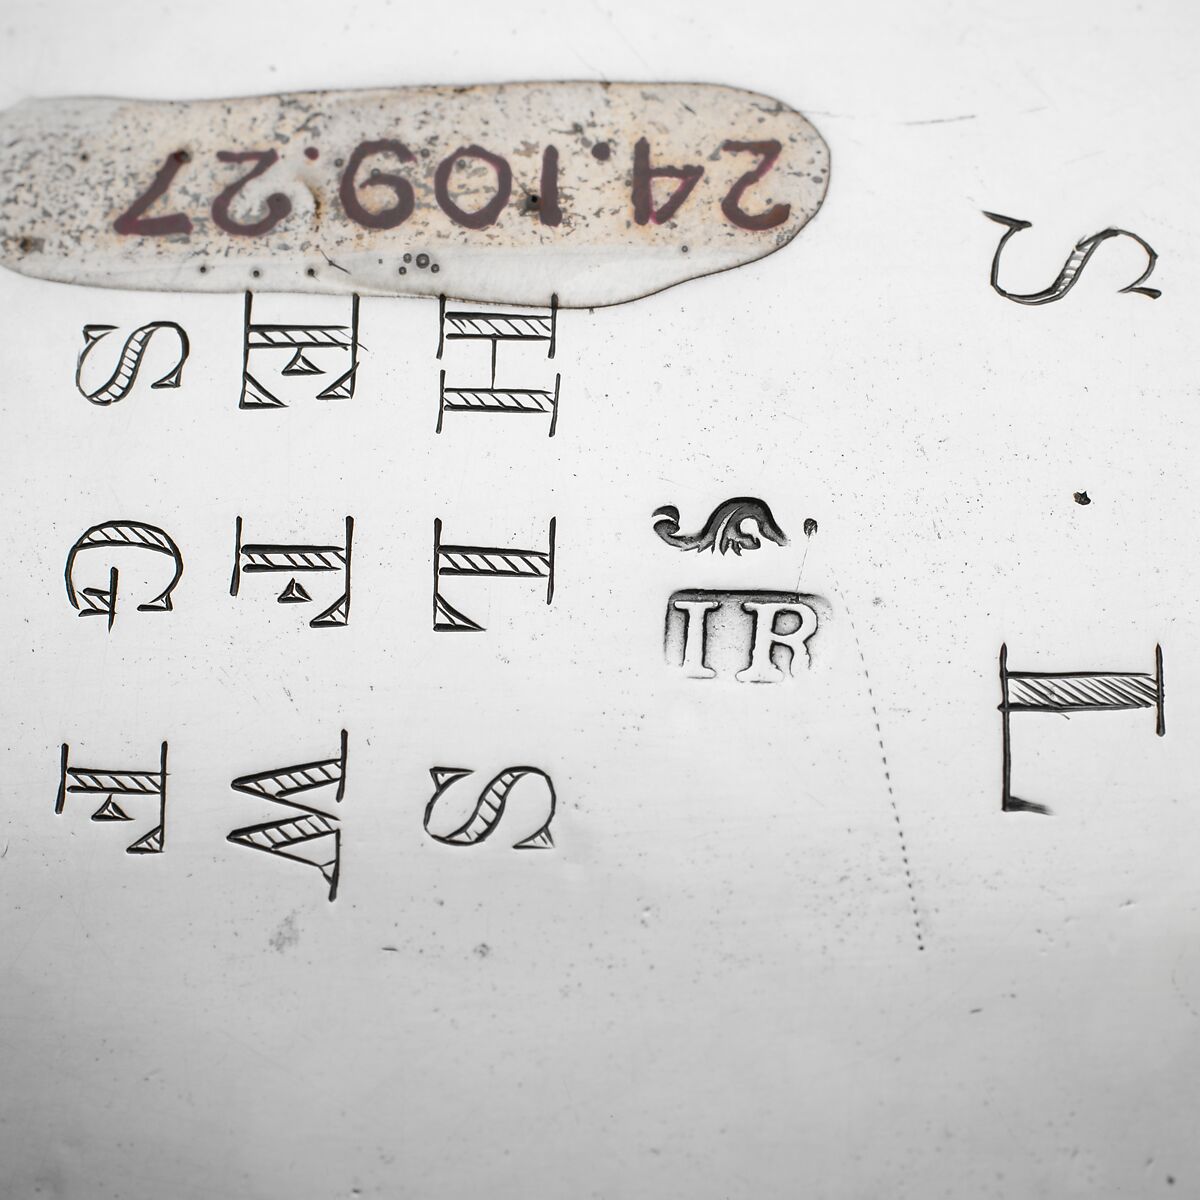 24.109.27
S . L
IR
H L S
E F W
S G F